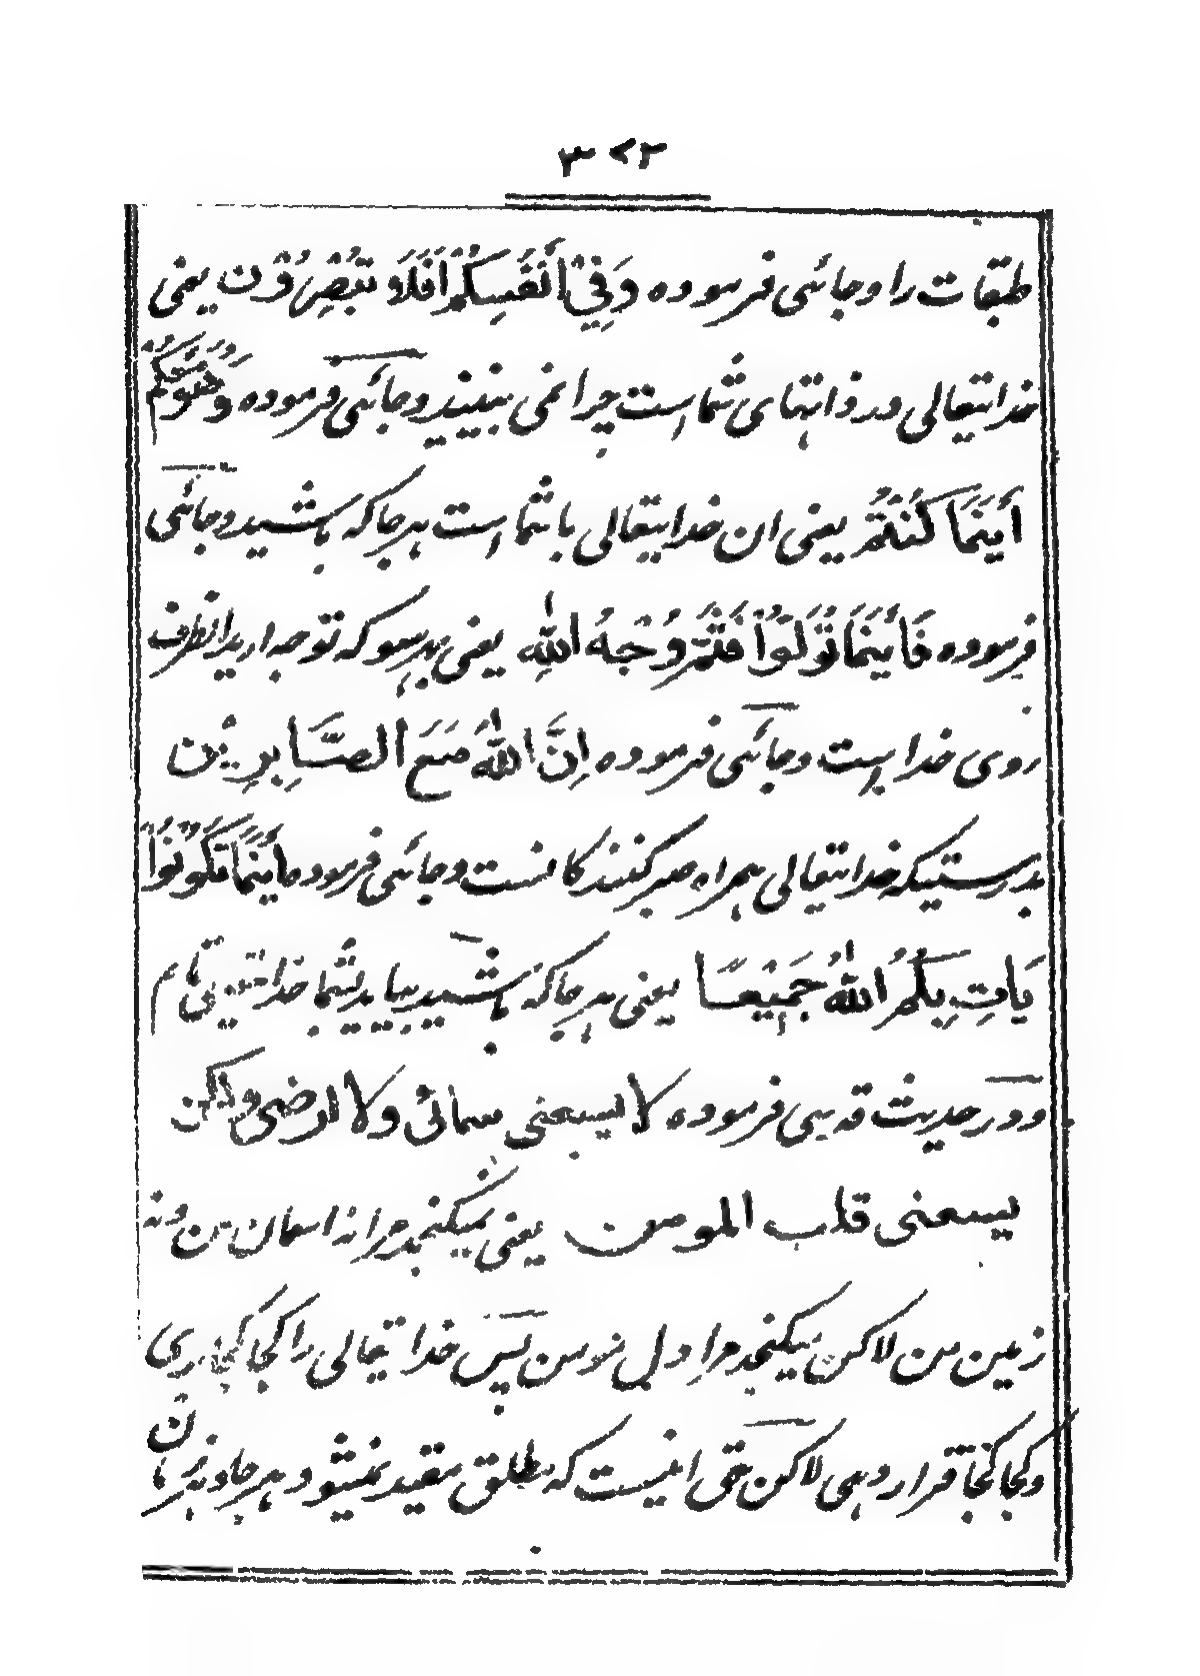 ۳۷۲
طبقات را و جائی فرموده وَفِیْ اَنْفُسِکُمْ اَفَلَا تُبْصِرُوْنَ یعنی
خدایتعالی در ذاتهای شما ست چرا نمی بینید و جائی فرموده وَهُوَ مَعَکُمْ
اَیْنَمَا کُنْتُمْ یعنی ان خدایتعالی با شما است هر جا که باشید و جائی
فرموده فَاَیْنَمَا تُوَلُّوْا فَثَمَّ وَجْهُ اللّٰهِ یعنی بهر سو که توجه ارید انطرف
روی خدا است و جائی فرموده اِنَّ اللّٰهَ مَعَ الصَّابِرِیْن
بدرستیکه خدایتعالی همراه صبر کنندکانست و جائی فرموده اَیْنَمَا تَکُوْنُوْا
یَاتِ بِکُمُ اللّٰهُ جَمِیْعًا یعنی هر جا که باشید بیاید بشما خدا تمام
و در حدیث قدسی فرموده لا یسعنی سمائی ولا ارضی ولکن
یسعنی قلب المومن یعنی نمیکنجد مرا نه اسمان من و نه
زمین من لاکن میکنجد مرا دل مومن پس خدایتعالی را کجا کجا بری
و کجا کجا قرار دهی لاکن حق انیست که مطلق مقید نمیشود و هر جا و هر زمان